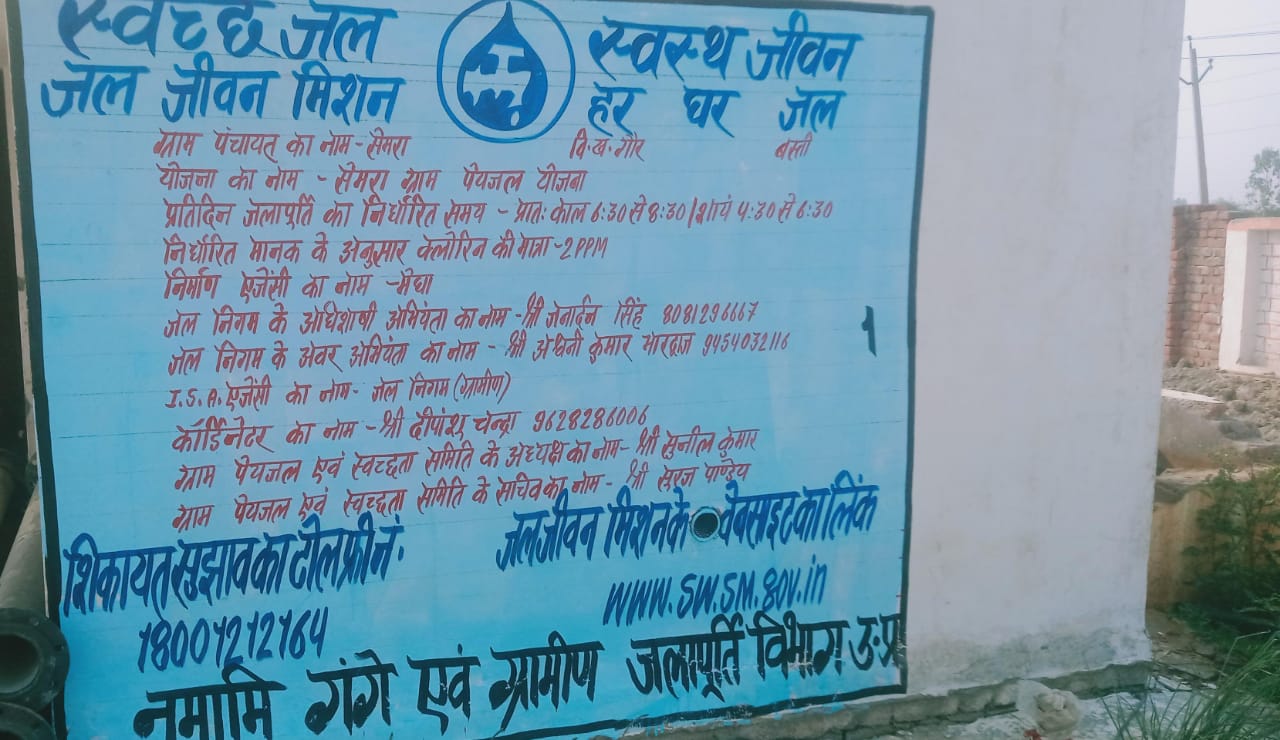 स्वच्छ जल स्वस्थ जीवन
जल जीवन मिशन हर घर जल
ग्राम पंचायत का नाम - सेमरा वि.ख. गौर बस्ती
योजना का नाम - सेमरा ग्राम पेयजल योजना
प्रतिदिन जलापूर्ति का निर्धारित समय - प्रातः काल 6:30 से 8:30/सायं 4:30 से 6:30
निर्धारित मानक के अनुसार क्लोरिन की मात्रा - 2 PPM
निर्माण एजेंसी का नाम - मेघा
जल निगम के अधिशाषी अभियंता का नाम - श्री जनार्दन सिंह 8081296667
जल निगम के अवर अभियंता का नाम - श्री अश्वनी कुमार भारद्वाज 9454032116
I.S.A. एजेंसी का नाम - जल निगम (ग्रामीण)
कॉर्डिनेटर का नाम - श्री दीपांशु चन्द्रा 9628286006
ग्राम पेयजल एवं स्वच्छता समिति के अध्यक्ष का नाम - श्री सुनील कुमार
ग्राम पेयजल एवं स्वच्छता समिति के सचिव का नाम - श्री सूरज पाण्डेय
शिकायत सुझाव का टोल फ्री नं.
18001212164
जल जीवन मिशन के वेबसाइट का लिंक
www.sw.sm.gov.in
नमामि गंगे एवं ग्रामीण जलापूर्ति विभाग उ.प्र